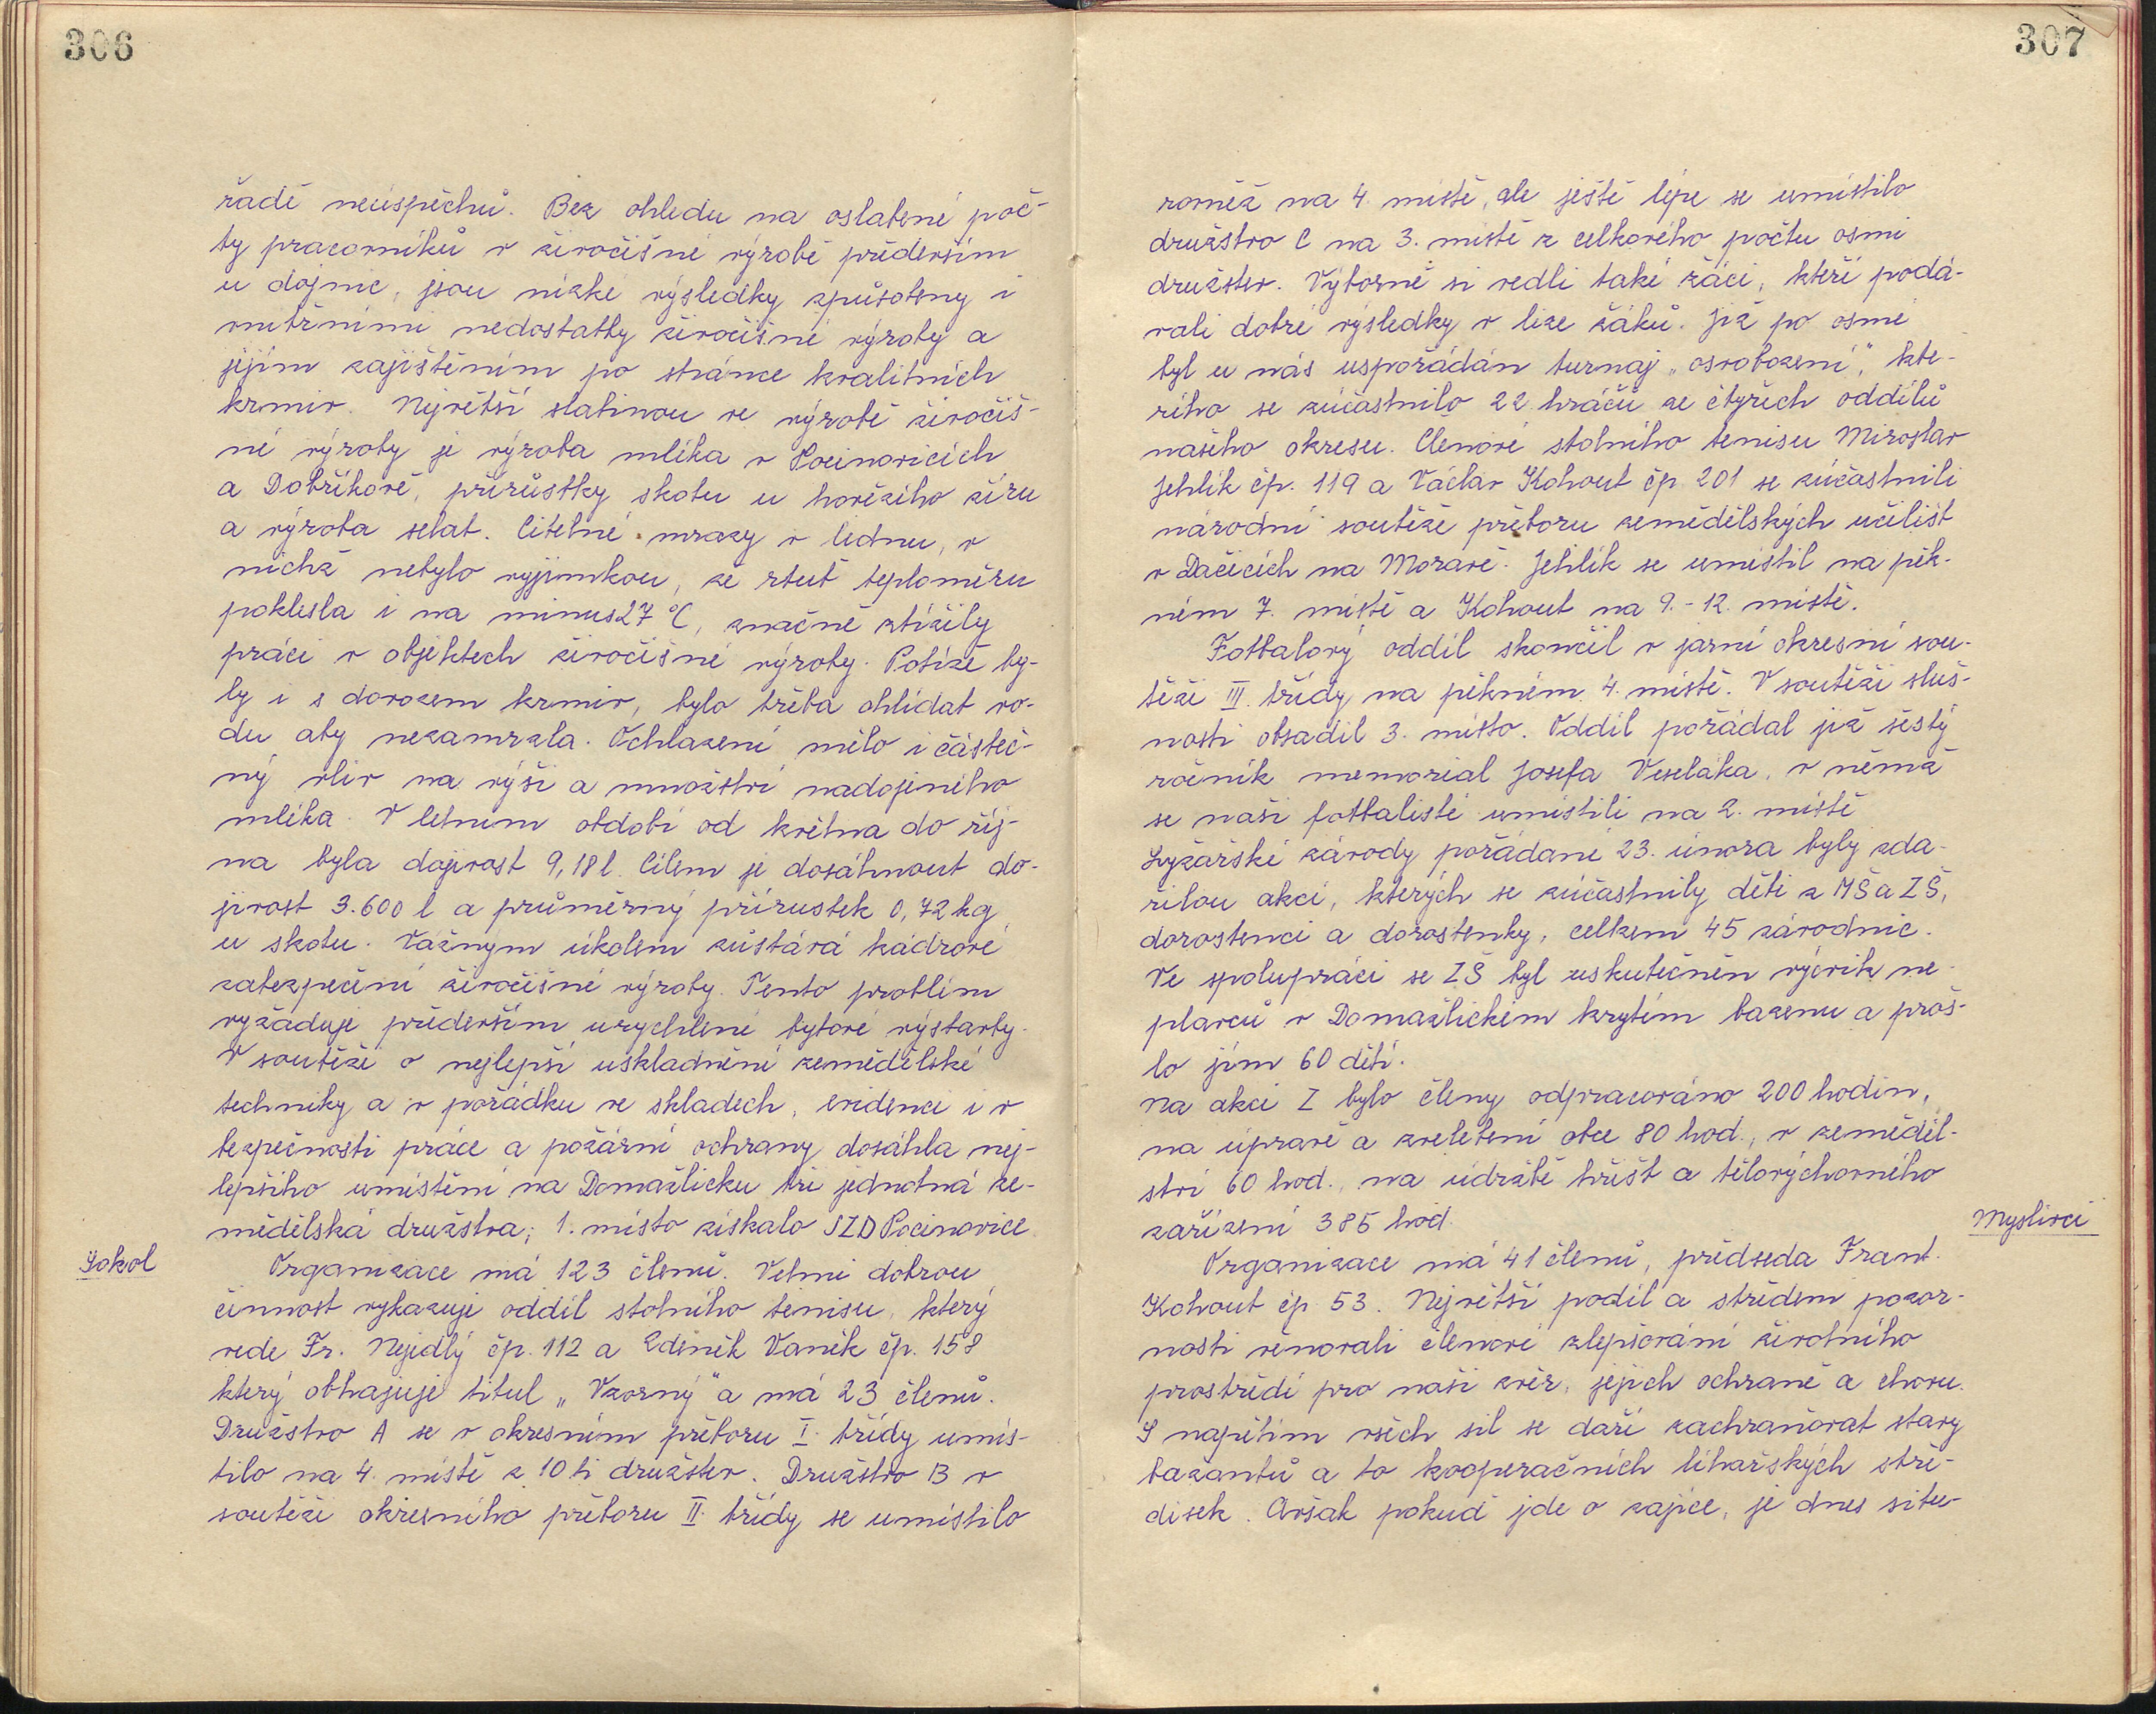 306
řadě neúspěchů. Bez ohledu na oslabené poč-
ty pracovníků v živočišné výrobě především
u dojnic, jsou nízké výsledky způsobeny i
vnitřními nedostatky živočišné výroby a
jejím zajištěním po stránce kvalitních
krmiv. Největší slabinou ve výrobě živočiš-
né výroby je výroba mléka v Pocinovicích
a Dobříkově, přírůstky skotu u hovězího žíru
a výroba selat. Citelné mrazy v lednu, v
nichž nebylo vyjímkou, že rtuť teploměru
poklesla i na minus 27 °C, značně ztížily
práci v objektech živočišné výroby. Potíže by-
ly i s dovozem krmiv, bylo třeba ohlídat vo-
du aby nezamrzla. Ochlazení mělo i částeč-
ný vliv na výši a množství nadojeného
mléka. V letním období od května do říj-
na byla dojivost 9,18 l. Cílem je dosáhnout do-
jivost 3.600 l a průměrný přírustek 0,72 kg
u skotu. Vážným úkolem zůstává kádrové
zabezpečení živočišné výroby. Tento problém
vyžaduje především urychlení bytové výstavby.
V soutěži o nejlepší uskladnění zemědělské
techniky a v pořádku ve skladech, evidence i v
bezpečnosti práce a požární ochrany dosáhla nej-
lepšího umístění na Domažlicku tři jednotná ze-
mědělská družstva; 1. místo získalo JZD Pocinovice.
Sokol
Organizace má 123 členů. Velmi dobrou
činnost vykazuje oddíl stolního tenisu, který
vede Fr. Nejedlý čp. 112 a Zdeněk Vaněk čp. 158
který obhajuje titul „Vzorný" a má 23 členů.
Družstvo A se v okresním přeboru I. třídy umís-
tilo na 4. místě z 10 ti družstev. Družstvo B v
soutěži okresního přeboru II. třídy se umístilo
307
rovněž na 4. místě, ale ještě lépe se umístilo
družstvo C na 3. místě z celkového počtu osmi
družstev. Výborně si vedli také žáci, kteří podá-
vali dobré výsledky v lize žáků. Již po osmé
byl u nás uspořádán turnaj „osvobození", kte-
rého se zúčastnilo 22 hráčů ze čtyřech oddílů
našeho okresu. Členové stolního tenisu Miroslav
Jehlík čp. 119 a Václav Kohout čp. 201 se zúčastnili
národní soutěže přeboru zemědělských učilišť
v Dačicích na Moravě. Jehlík se umístil na pěk-
ném 7. místě a Kohout na 9.-12. místě.
Fotbalový oddíl skončil v jarní okresní sou-
těži III. třídy na pěkném 4. místě. V soutěži sluš-
nosti obsadil 3. místo. Oddíl pořádal již šestý
ročník memorial Josefa Veseláka, v němž
se naši fotbalisté umístili na 2. místě
Lyžařské závody pořádané 23. února byly zda-
řilou akcí, kterých se zúčastnily děti z MŠ a ZŠ,
dorostenci a dorostenky, celkem 45 závodnic.
Ve spolupráci se ZŠ byl uskutečněn výcvik ne-
plavců v Domažlickém krytém bazenu a proš-
lo jím 60 dětí.
Na akci Z bylo členy odpracováno 200 hodin,
na úpravě a zvelebení obce 80 hod., v zeměděl-
ství 60 hod., na údržbě hřišť a tělovýchovného
zařízení 385 hod.
Myslivci
Organizace má 41 členů, předseda Frant.
Kohout čp. 53. Největší podíl a středem pozor-
nosti věnovali členové zlepšování životního
prostředí pro naši zvěř, jejich ochraně a chovu.
S napětím všech sil se daří zachraňovat stavy
bažantů a to kooperačních líhařských stře-
disek. Avšak pokud jde o zajíce, je dnes situ-